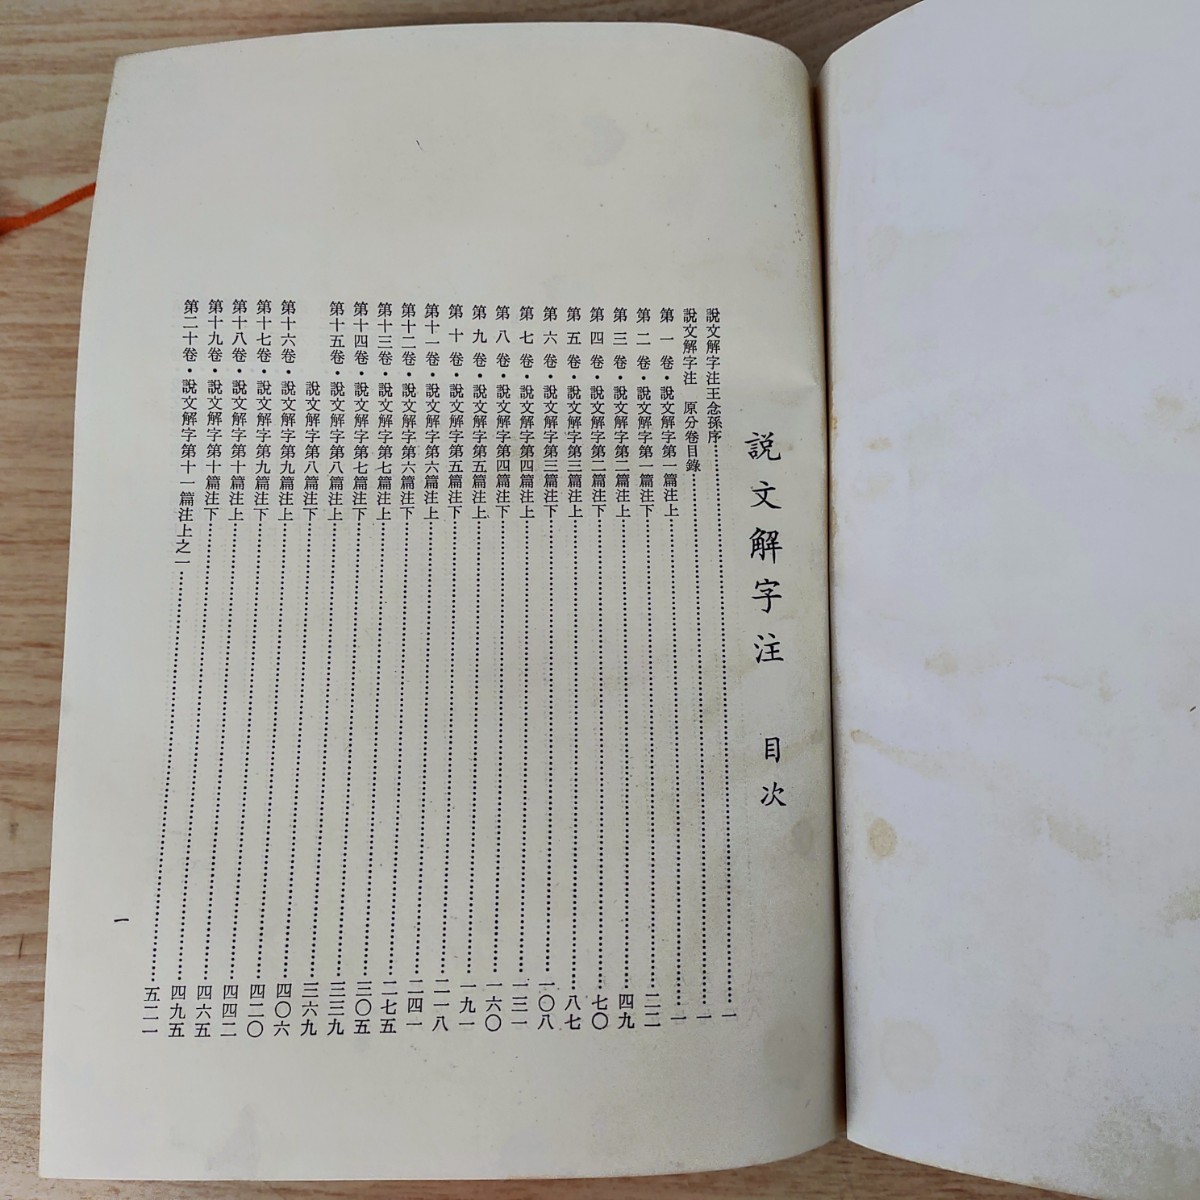 説文解字注　目次
說文解字注王念孫序…………一
說文解字注　原分卷目錄…………一
第一卷・說文解字第一篇注上…………一
第二卷・說文解字第一篇注下…………二二
第三卷・說文解字第二篇注上…………四九
第四卷・說文解字第二篇注下…………七〇
第五卷・說文解字第三篇注上…………八七
第六卷・說文解字第三篇注下…………一〇八
第七卷・說文解字第四篇注上…………一三一
第八卷・說文解字第四篇注下…………一六〇
第九卷・說文解字第五篇注上…………一九一
第十卷・說文解字第五篇注下…………二一八
第十一卷・說文解字第六篇注上…………二四一
第十二卷・說文解字第六篇注下…………二七五
第十三卷・說文解字第七篇注上…………三〇五
第十四卷・說文解字第七篇注下…………三三九
第十五卷・說文解字第八篇注上…………三六九
說文解字第八篇注下…………四〇六
第十六卷・說文解字第九篇注上…………四二〇
第十七卷・說文解字第九篇注下…………四四二
第十八卷・說文解字第十篇注上…………四六五
第十九卷・說文解字第十篇注下…………四九五
第二十卷・說文解字第十一篇注上之一…………五二一
一